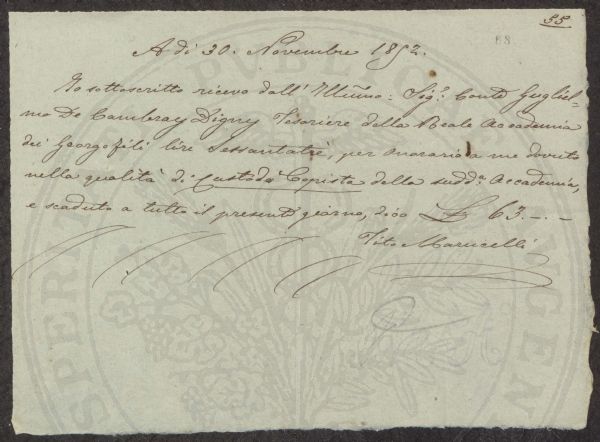 55
88
A dì 30. Novembre 1852.
Io sottoscritto ricevo dall' Illũmo: Sigr. Conte Gugliel-
mo De Cambray Digny Tesoriere della Reale Accademia
dei Georgofili lire Sessantatrè, per onorario a me dovuto
nella qualità di Custode Copista della sudda. Accademia,
e scaduto a tutto il presente giorno, dico £ 63.-.-
Vito Marucelli